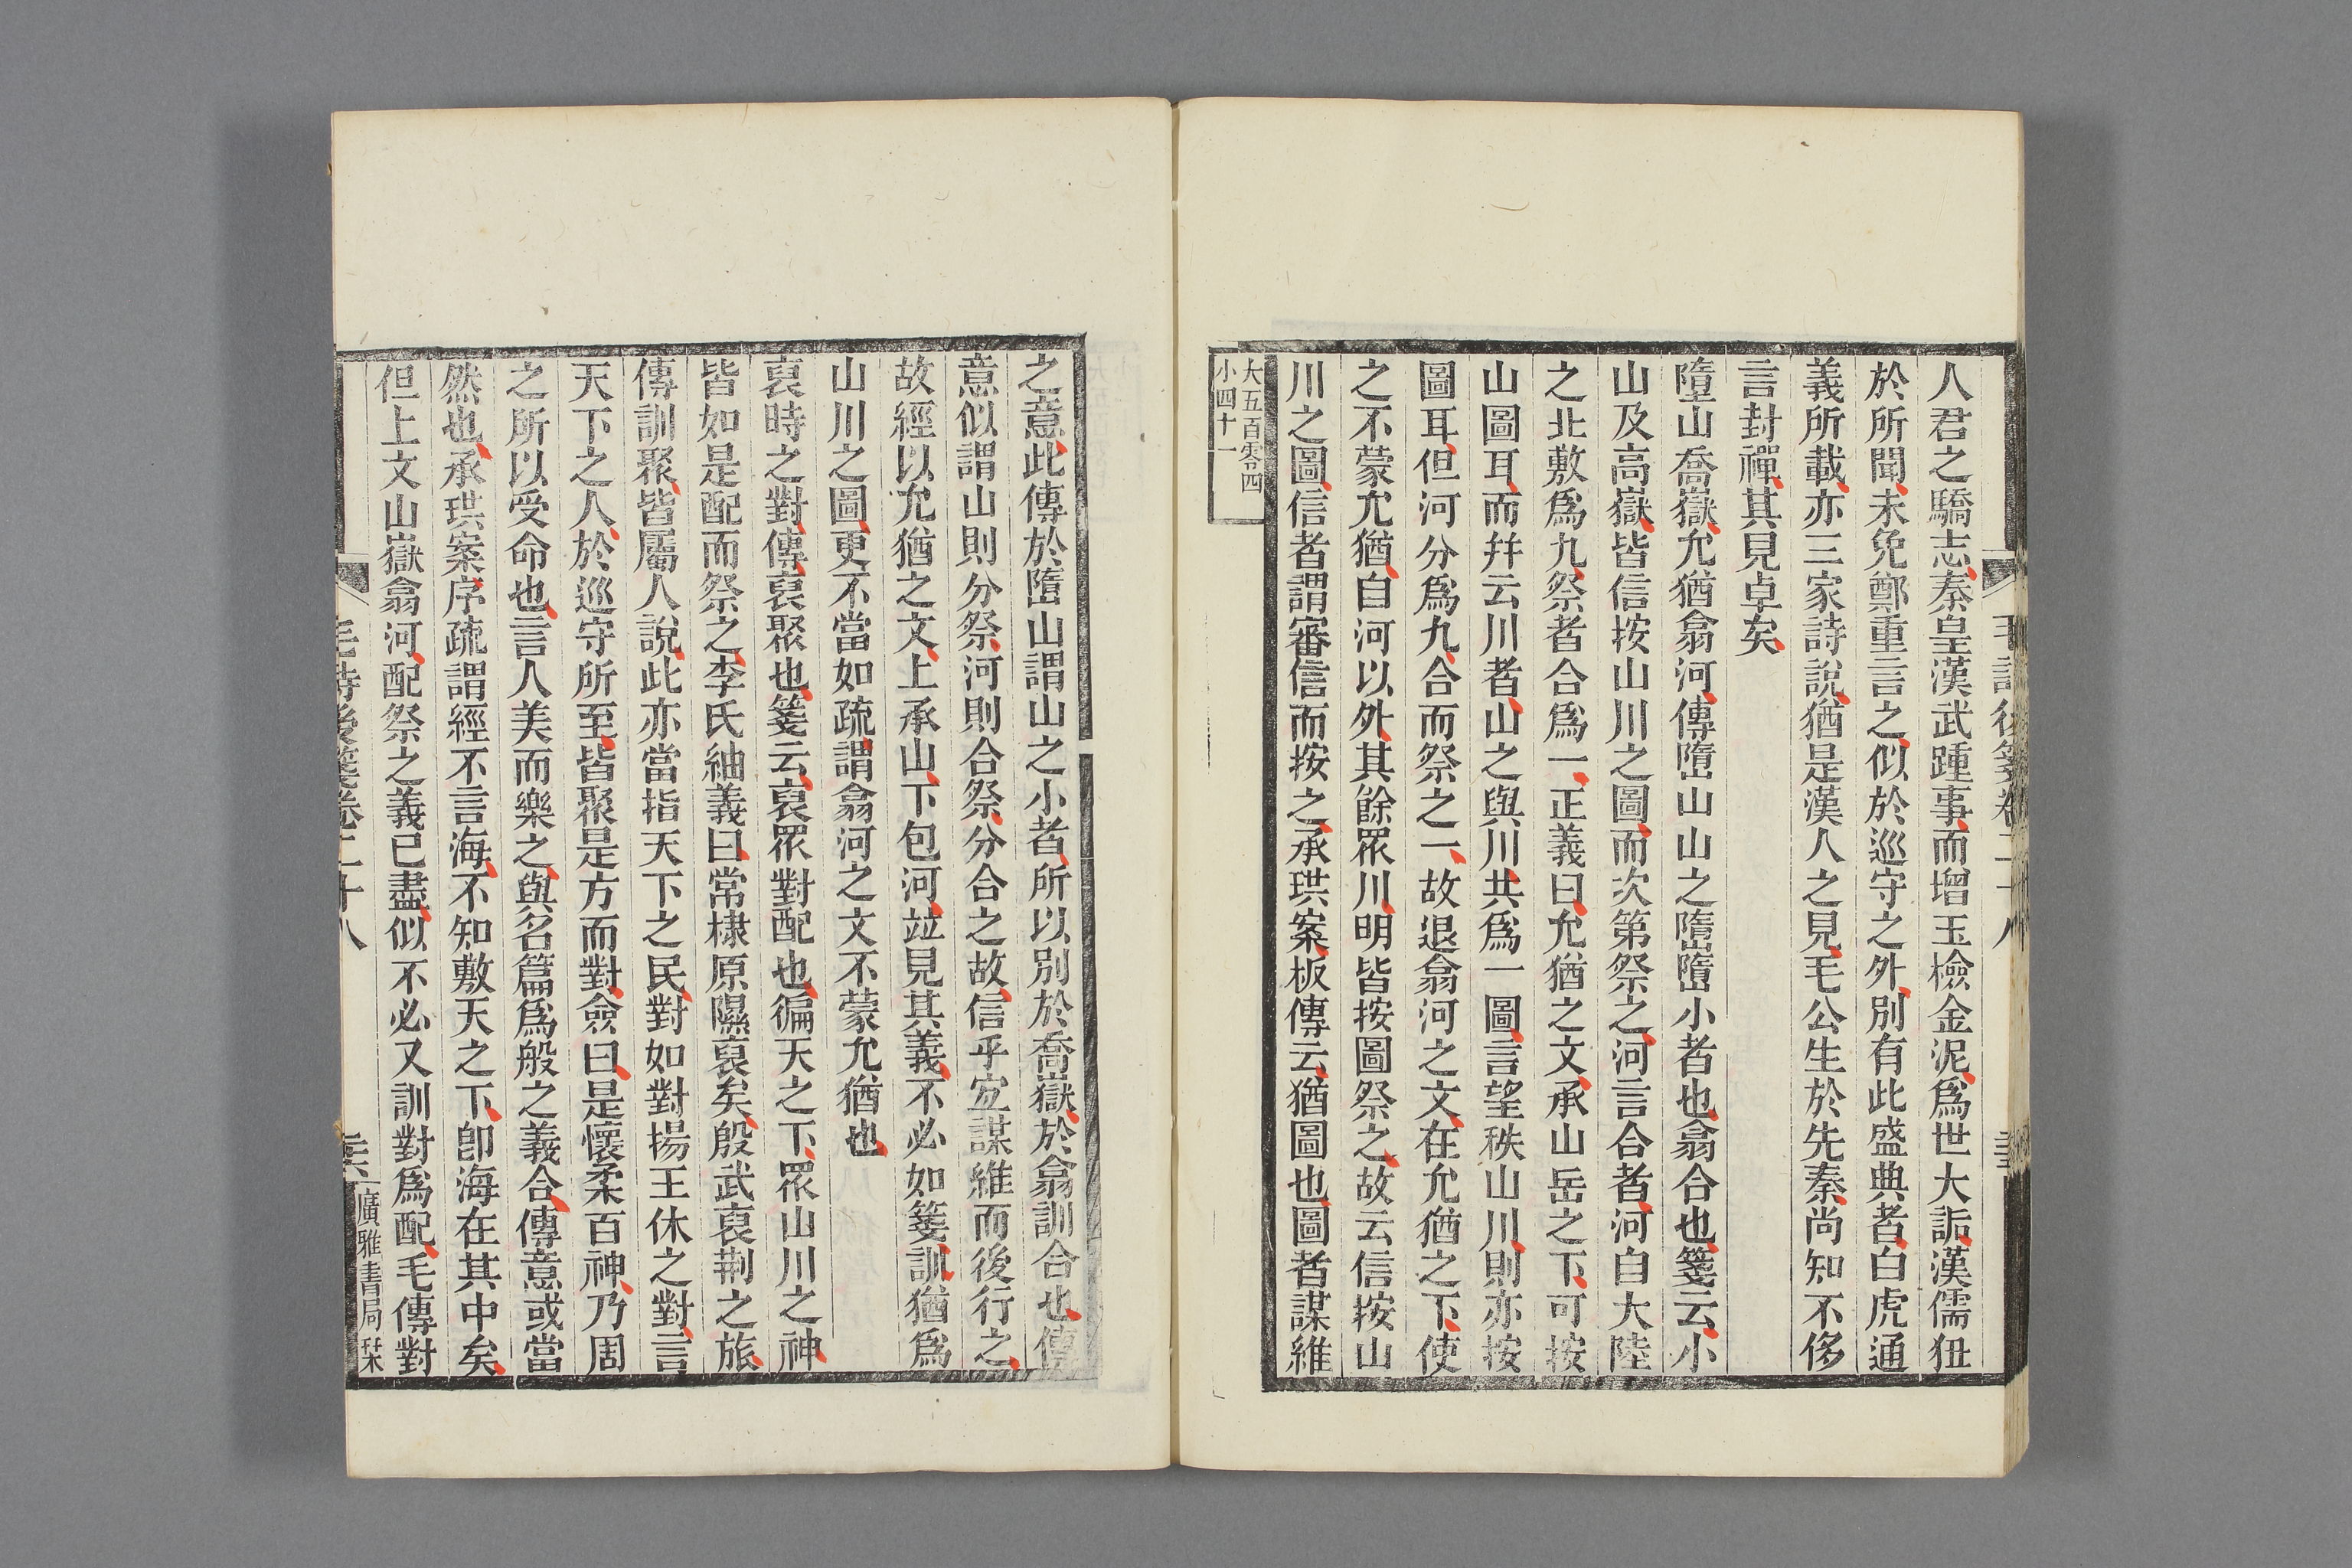 人君之驕志秦皇漢武踵事而增玉檢金泥爲世大詬漢儒狃
於所聞未免鄭重言之似於巡守之外別有此盛典者白虎通
義所載亦三家詩說猶是漢人之見毛公生於先秦尚知不侈
言封禪其見卓矣
墮山喬嶽允猶翕河傳墮山山之隋墮小者也翕合也箋云小
山及高嶽皆信按山川之圖而次第祭之河言合者河自大陸
之北敷爲九祭者合爲一正義曰允猶之文承山岳之下可按
山圖耳而幷云川者山之與川共爲一圖言望秩山川則亦按
圖耳但河分爲九合而祭之一故退翕河之文在允猶之下使
之不蒙允猶自河以外其餘眾川明皆按圖祭之故云信按山
川之圖信者謂審信而按之承珙案板傳云猶圖也圖者謀維
大五百零四
小四十一
之意此傳於墮山謂山之小者所以別於喬嶽於翕訓合也傳
意似謂山則分祭河則合祭分合之故信乎宜謀維而後行之
故經以允猶之文上承山下包河竝見其義不必如箋訓猶爲
山川之圖更不當如疏謂翕河之文不蒙允猶也
裒時之對傳裒聚也箋云裒眾對配也徧天之下眾山川之神
皆如是配而祭之李氏紬義曰常棣原隰裒矣殷武裒荆之旅
傳訓聚皆屬人說此亦當指天下之民對如對揚王休之對言
天下之人於巡守所至皆聚是方而對僉曰是懷柔百神乃周
之所以受命也言人美而樂之與名篇爲般之義合傳意或當
然也承珙案序疏謂經不言海不知敷天之下卽海在其中矣
但上文山嶽翕河配祭之義已盡似不必又訓對爲配毛傳對
毛詩後箋卷二十八
廣雅書局栞